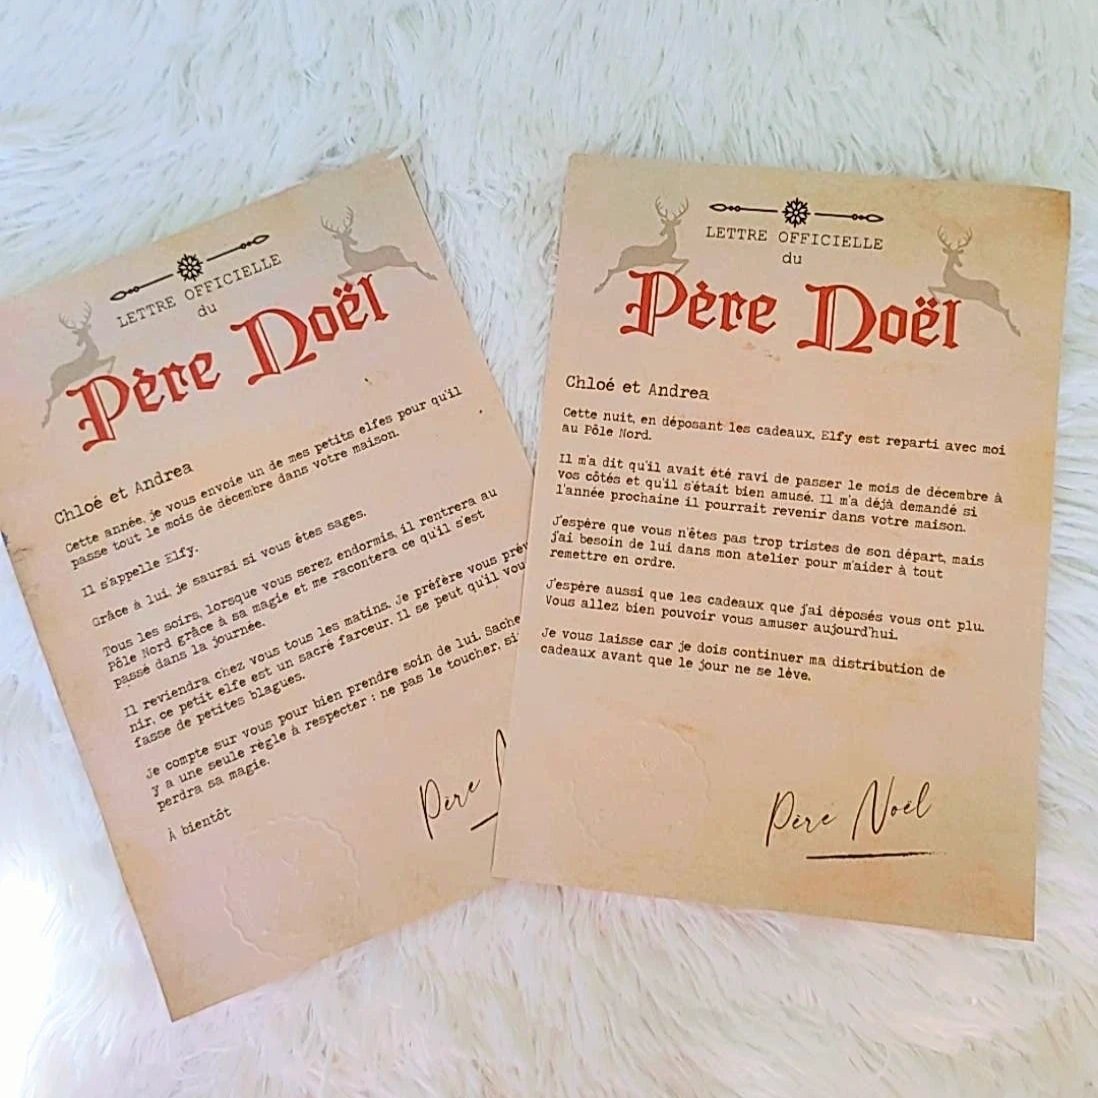 LETTRE OFFICIELLE
du
Père Noël
Chloé et Andrea
Cette année, je vous envoie un de mes petits elfes pour qu'il
passe tout le mois de décembre dans votre maison.
Il s'appelle Elfy.
Grâce à lui, je saurai si vous êtes sages.
Tous les soirs, lorsque vous serez endormis, il rentrera au
Pôle Nord grâce à sa magie et me racontera ce qu'il s'est
passé dans la journée.
Il reviendra chez vous tous les matins. Je préfère vous
nir, ce petit elfe est un sacré farceur. Il se peut qu'il
fasse de petites blagues.
Je compte sur vous pour bien prendre soin de lui.
y a une seule règle à respecter : ne pas le toucher,
perdra sa magie.
À bientôt
Père
LETTRE OFFICIELLE
du
Père Noël
Chloé et Andrea
Cette nuit, en déposant les cadeaux, Elfy est reparti avec moi
au Pôle Nord.
Il m'a dit qu'il avait été ravi de passer le mois de décembre à
vos côtés et qu'il s'était bien amusé. Il m'a déjà demandé si
l'année prochaine il pourrait revenir dans votre maison.
J'espère que vous n'êtes pas trop tristes de son départ, mais
j'ai besoin de lui dans mon atelier pour m'aider à tout
remettre en ordre.
J'espère aussi que les cadeaux que j'ai déposés vous ont plu.
Vous allez bien pouvoir vous amuser aujourd'hui.
Je vous laisse car je dois continuer ma distribution de
cadeaux avant que le jour ne se lève.
Père Noël